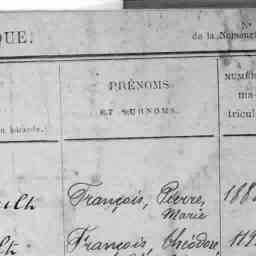 QUE.
N°
de la Nomencl
PRÉNOMS
ET SURNOMS.
NUMÉR
ma-
tricul
François, Pierre,
Marie
188
François, Théodore
119